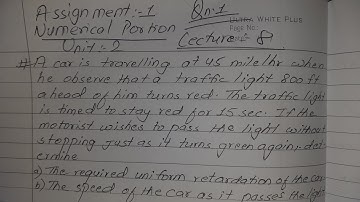 Assignment:-1 Qn:1
ULTRA WHITE PLUS
Numerical Portion
Page No:
Unit:-2 Lecture:- 8
# A car is travelling at 45 mile/hr when
he observe that a traffic light 800 ft
ahead of him turns red. The traffic light
is timed to stay red for 15 sec. If the
motorist wishes to pass the light without
stopping just as it turns green again, det
ermine
a) The required uniform retardation of the car
b) The speed of the car as it passes the light